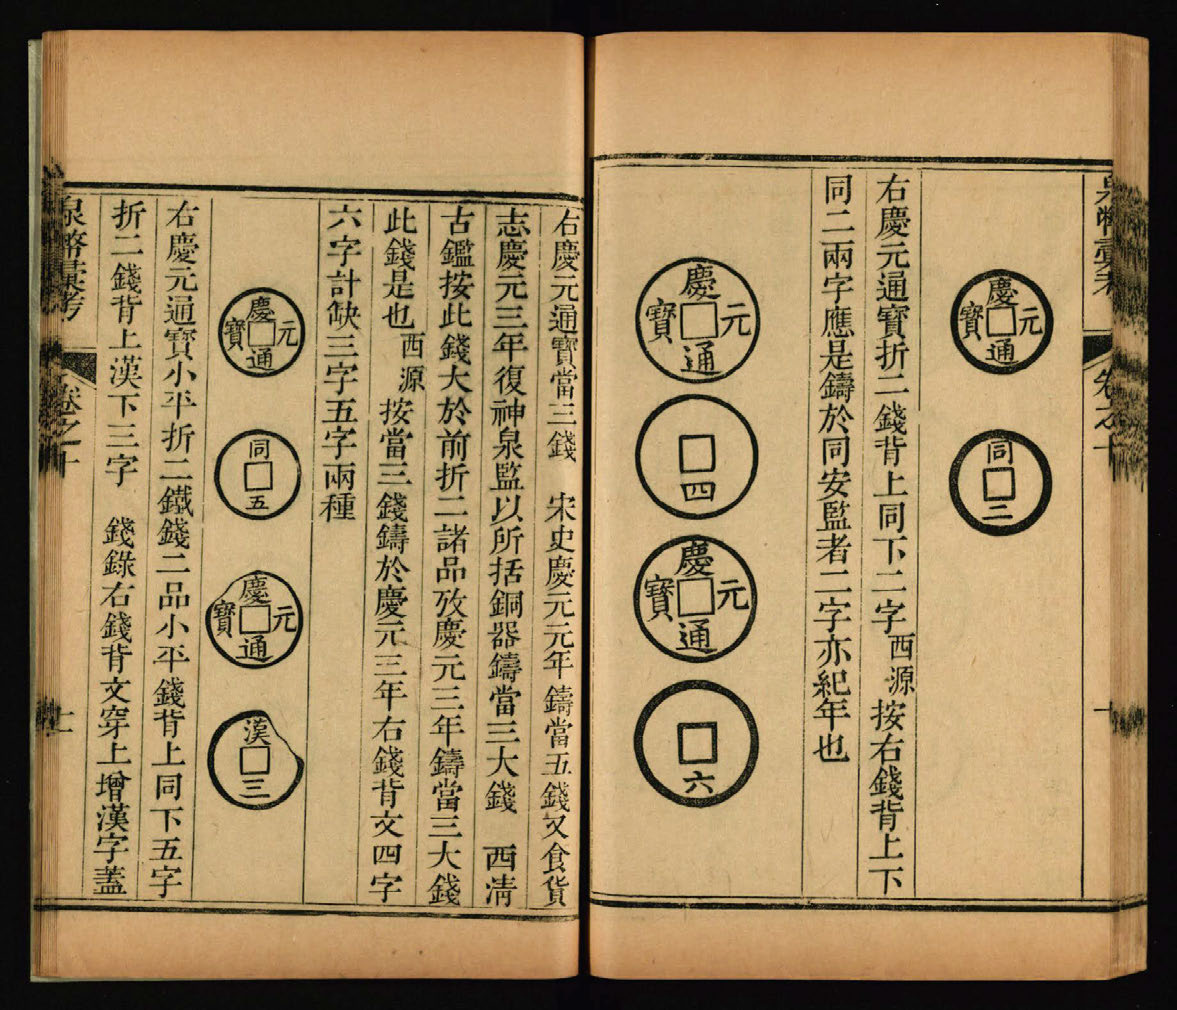 泉幣彙考
卷之十
十
慶元通寶
同二
右慶元通寶折二錢背上同下二字西源按右錢背上下
同二兩字應是鑄於同安監者二字亦紀年也
慶元通寶
四
慶元通寶
六
右慶元通寶當三錢　宋史慶元元年鑄當五錢又食貨
志慶元三年復神泉監以所括銅器鑄當三大錢　西清
古鑑按此錢大於前折二諸品攷慶元三年鑄當三大錢
此錢是也西源按當三錢鑄於慶元三年右錢背文四字
六字計缺三字五字兩種
慶元通寶
同五
慶元通寶
漢三
右慶元通寶小平折二鐵錢二品小平錢背上同下五字
折二錢背上漢下三字　錢錄右錢背文穿上增漢字蓋
泉幣彙考
卷之十